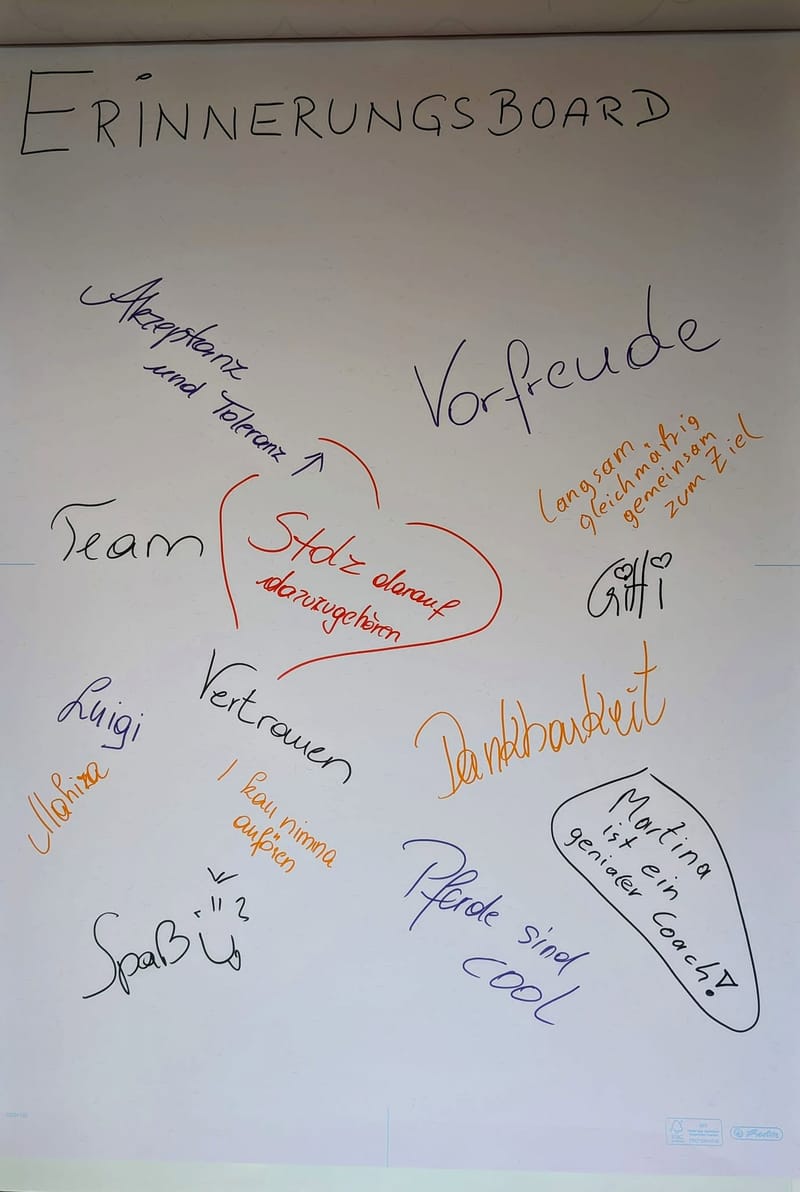 ERINNERUNGSBOARD
Akzeptanz
und Toleranz
Vorfreude
Langsam
gleichmäßig
gemeinsam
zum Ziel
Team
Stolz darauf
dazuzugehören
Gitti
Vertrauen
Luigi
Dankbarkeit
I kau nimma
aufören
Martina
ist ein
genialer Coach!
Pferde sind
cool
Spaß